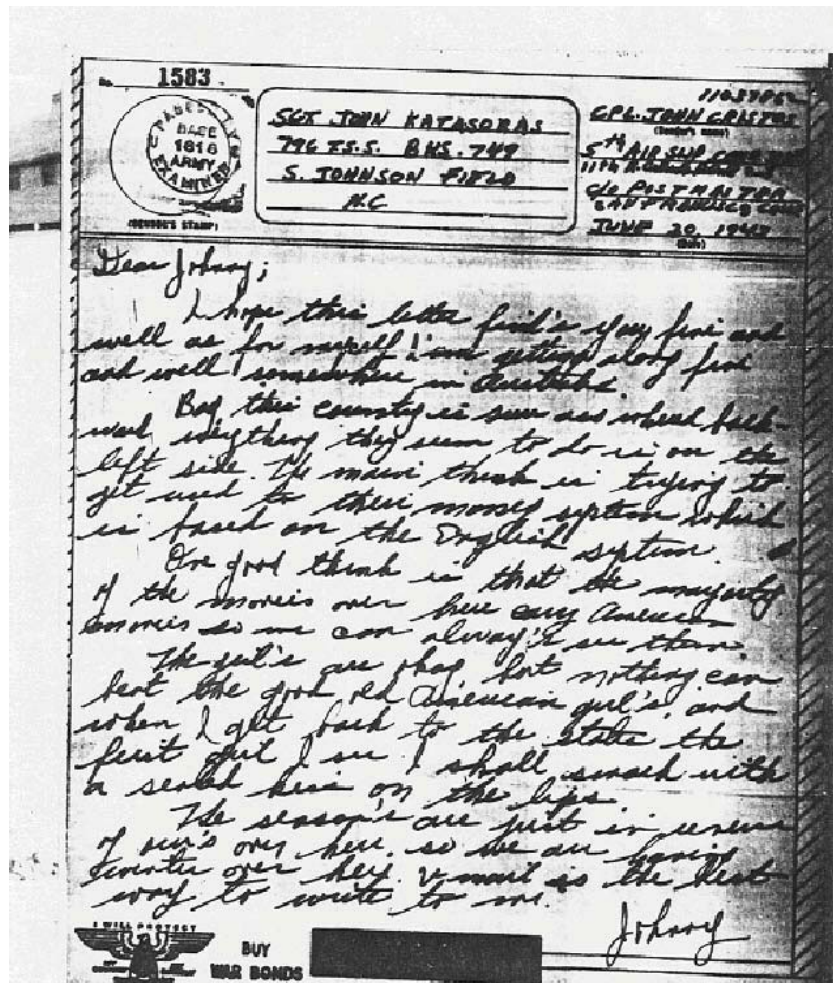 No. 1583
PASSED BY
BASE
1816
ARMY
EXAMINER
(CENSOR'S STAMP)
SGT JOHN KATASORAS
796 T.S.S. BKS. 749
S. JOHNSON FIELD
N.C
CPL. JOHN
(Sender's name)
5th AIR SUP
c/o POSTMASTER
SAN FRANCISCO
JUNE 20,
(Date)
Dear Johnny;
I hope this letter find's you fine and
well as for myself I'm getting along fine
and well somewhere in Australia.
Boy this country is sure back-
ward everything they seem to do is on the
left side. The main think is trying to
get used to their money system which
is based on the English system.
One good think is that the majority
of the movies over here carry American
movies so we can alway's see them.
The girl's are okay but nothing can
beat the good old American girl's, and
when I get back to the state the
first girl I see I shall smack with
a sealed kiss on the lips.
The season's are just in
of our's over here, so we are having
winter over here. V-mail is the best
way to write to me.
Johnny
I WILL PROTECT
BUY
WAR BONDS